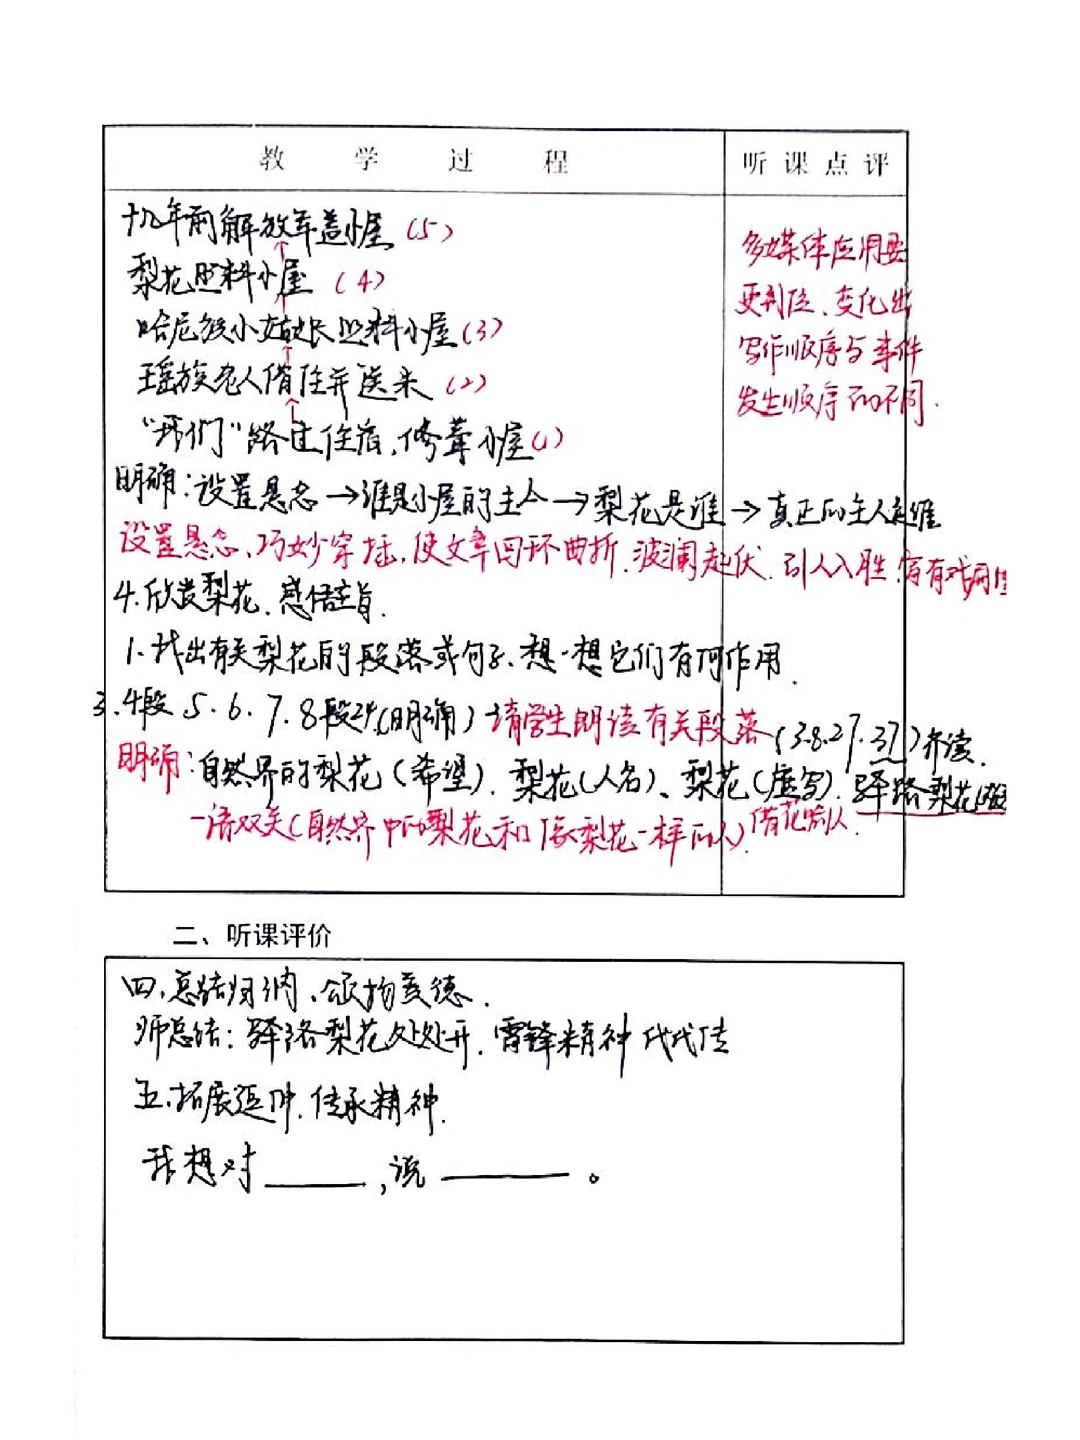 教 学 过 程
听 课 点 评
十几年前解放军盖小屋 (5)
梨花照料小屋 (4)
哈尼族小姑娘照料小屋 (3)
瑶族老人借住并送米 (2)
“我们”路过住宿、修葺小屋 (1)
多媒体应用要
更到位、变化出
写作顺序与事件
发生顺序的不同.
明确:设置悬念→谁是小屋的主人→梨花是谁→真正的主人是谁
设置悬念、巧妙穿插,使文章回环曲折、波澜起伏、引人入胜、富有戏剧性
4.欣赏梨花、感悟主旨.
1.找出有关梨花的段落或句子、想一想它们有何作用.
3.4段 5.6.7.8段(明确)请学生朗读有关段落(3.8.27.37)齐读.
明确:自然界的梨花(希望).梨花(人名)、梨花(虚写).驿路梨花
一语双关(自然界中的梨花和像梨花一样的人).借花喻人.
二、听课评价
四、总结归纳、颂扬美德.
师总结:驿路梨花处处开.雷锋精神代代传
五.拓展延伸.传承精神.
我想对____,说____。